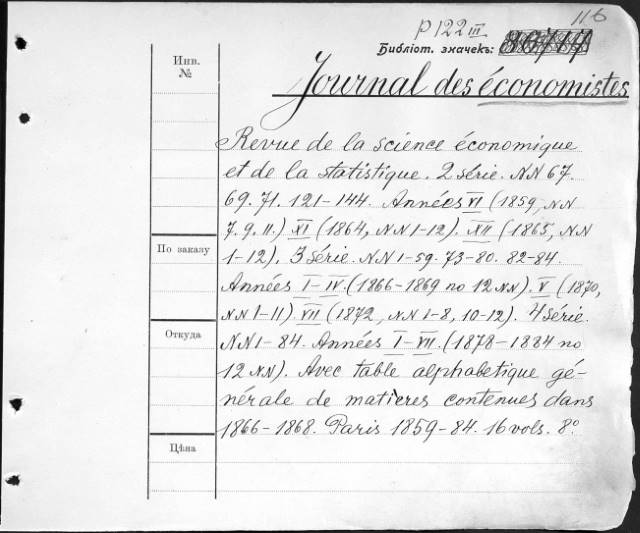 116
P 122 III
Библіот. значекъ: 86717
Journal des économistes
Инв.
№
Revue de la science économique
et de la statistique. 2 série. NN 67.
69. 71. 121-144. Années VI (1859, NN
7. 9. 11.) XI (1864, NN 1-12). XII (1865, NN
1-12), 3 série. NN 1-59. 73-80. 82-84.
Années I-IV. (1866-1869 по 12 NN). V (1870,
NN 1-11) VII (1872, NN 1-8, 10-12). 4 série.
NN 1-84. Années I-VII. (1878-1884 по
12 NN). Avec table alphabetique gé-
nérale de matières contenues dans
1866-1868. Paris 1859-84. 16 vols. 8°
По заказу
Откуда
Цѣна